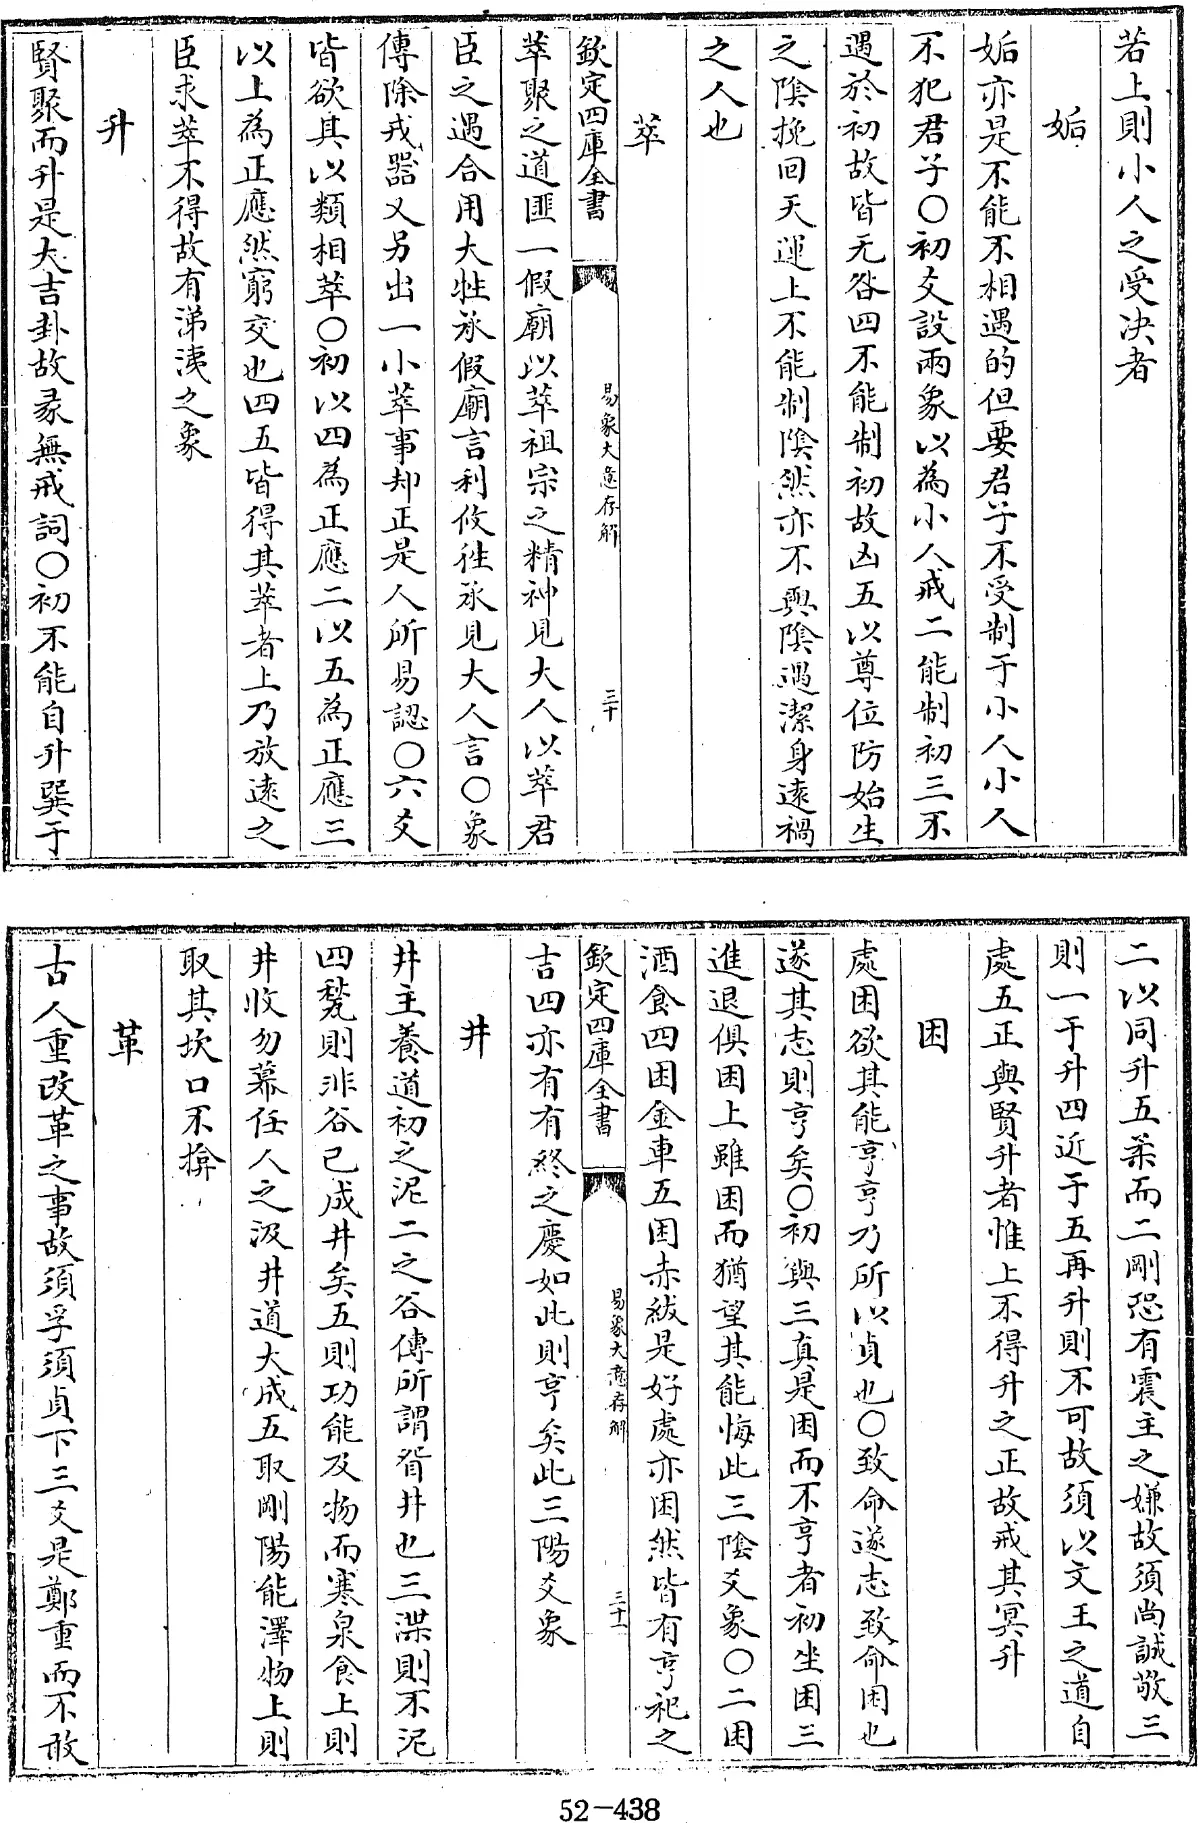 若上則小人之受决者
姤
姤亦是不能不相遇的但要君子不受制于小人小人
不犯君子〇初爻設兩象以為小人戒二能制初三不
遇於初故皆无咎四不能制初故凶五以尊位防始生
之陰挽回天運上不能制陰然亦不與陰遇潔身遠禍
之人也
萃
欽定四庫全書
易象大意存解
三十
萃聚之道匪一假廟以萃祖宗之精神見大人以萃君
臣之遇合用大牲承假廟言利攸往承見大人言〇象
傳除戎器又另出一小萃事却正是人所易認〇六爻
皆欲其以類相萃〇初以四為正應二以五為正應三
以上為正應然窮交也四五皆得其萃者上乃放遠之
臣求萃不得故有涕洟之象
升
賢聚而升是大吉卦故彖無戒詞〇初不能自升巽于
二以同升五柔而二剛恐有震主之嫌故須尚誠敬三
則一于升四近于五再升則不可故須以文王之道自
處五正與賢升者惟上不得升之正故戒其冥升
困
處困欲其能亨亨乃所以貞也〇致命遂志致命困也
遂其志則亨矣〇初與三真是困而不亨者初坐困三
進退俱困上雖困而猶望其能悔此三陰爻象〇二困
酒食四困金車五困赤紱是好處亦困然皆有亨祀之
欽定四庫全書
易象大意存解
三十一
吉四亦有有終之慶如此則亨矣此三陽爻象
井
井主養道初之泥二之谷傳所謂眢井也三渫則不泥
四甃則非谷已成井矣五則功能及物而寒泉食上則
井收勿幕任人之汲井道大成五取剛陽能澤物上則
取其坎口不揜
革
古人重改革之事故須孚須貞下三爻是鄭重而不敢
52-438